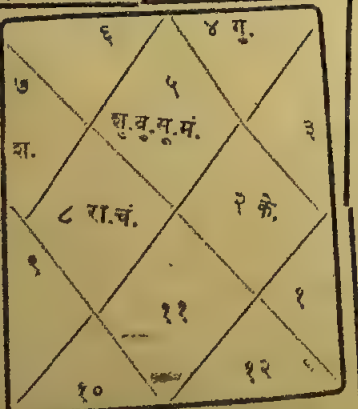 ६
४ गु.
५
७
शु.बु.सू.मं.
३
श.
८ रा.चं.
२ के.
९
११
१
१०
१२